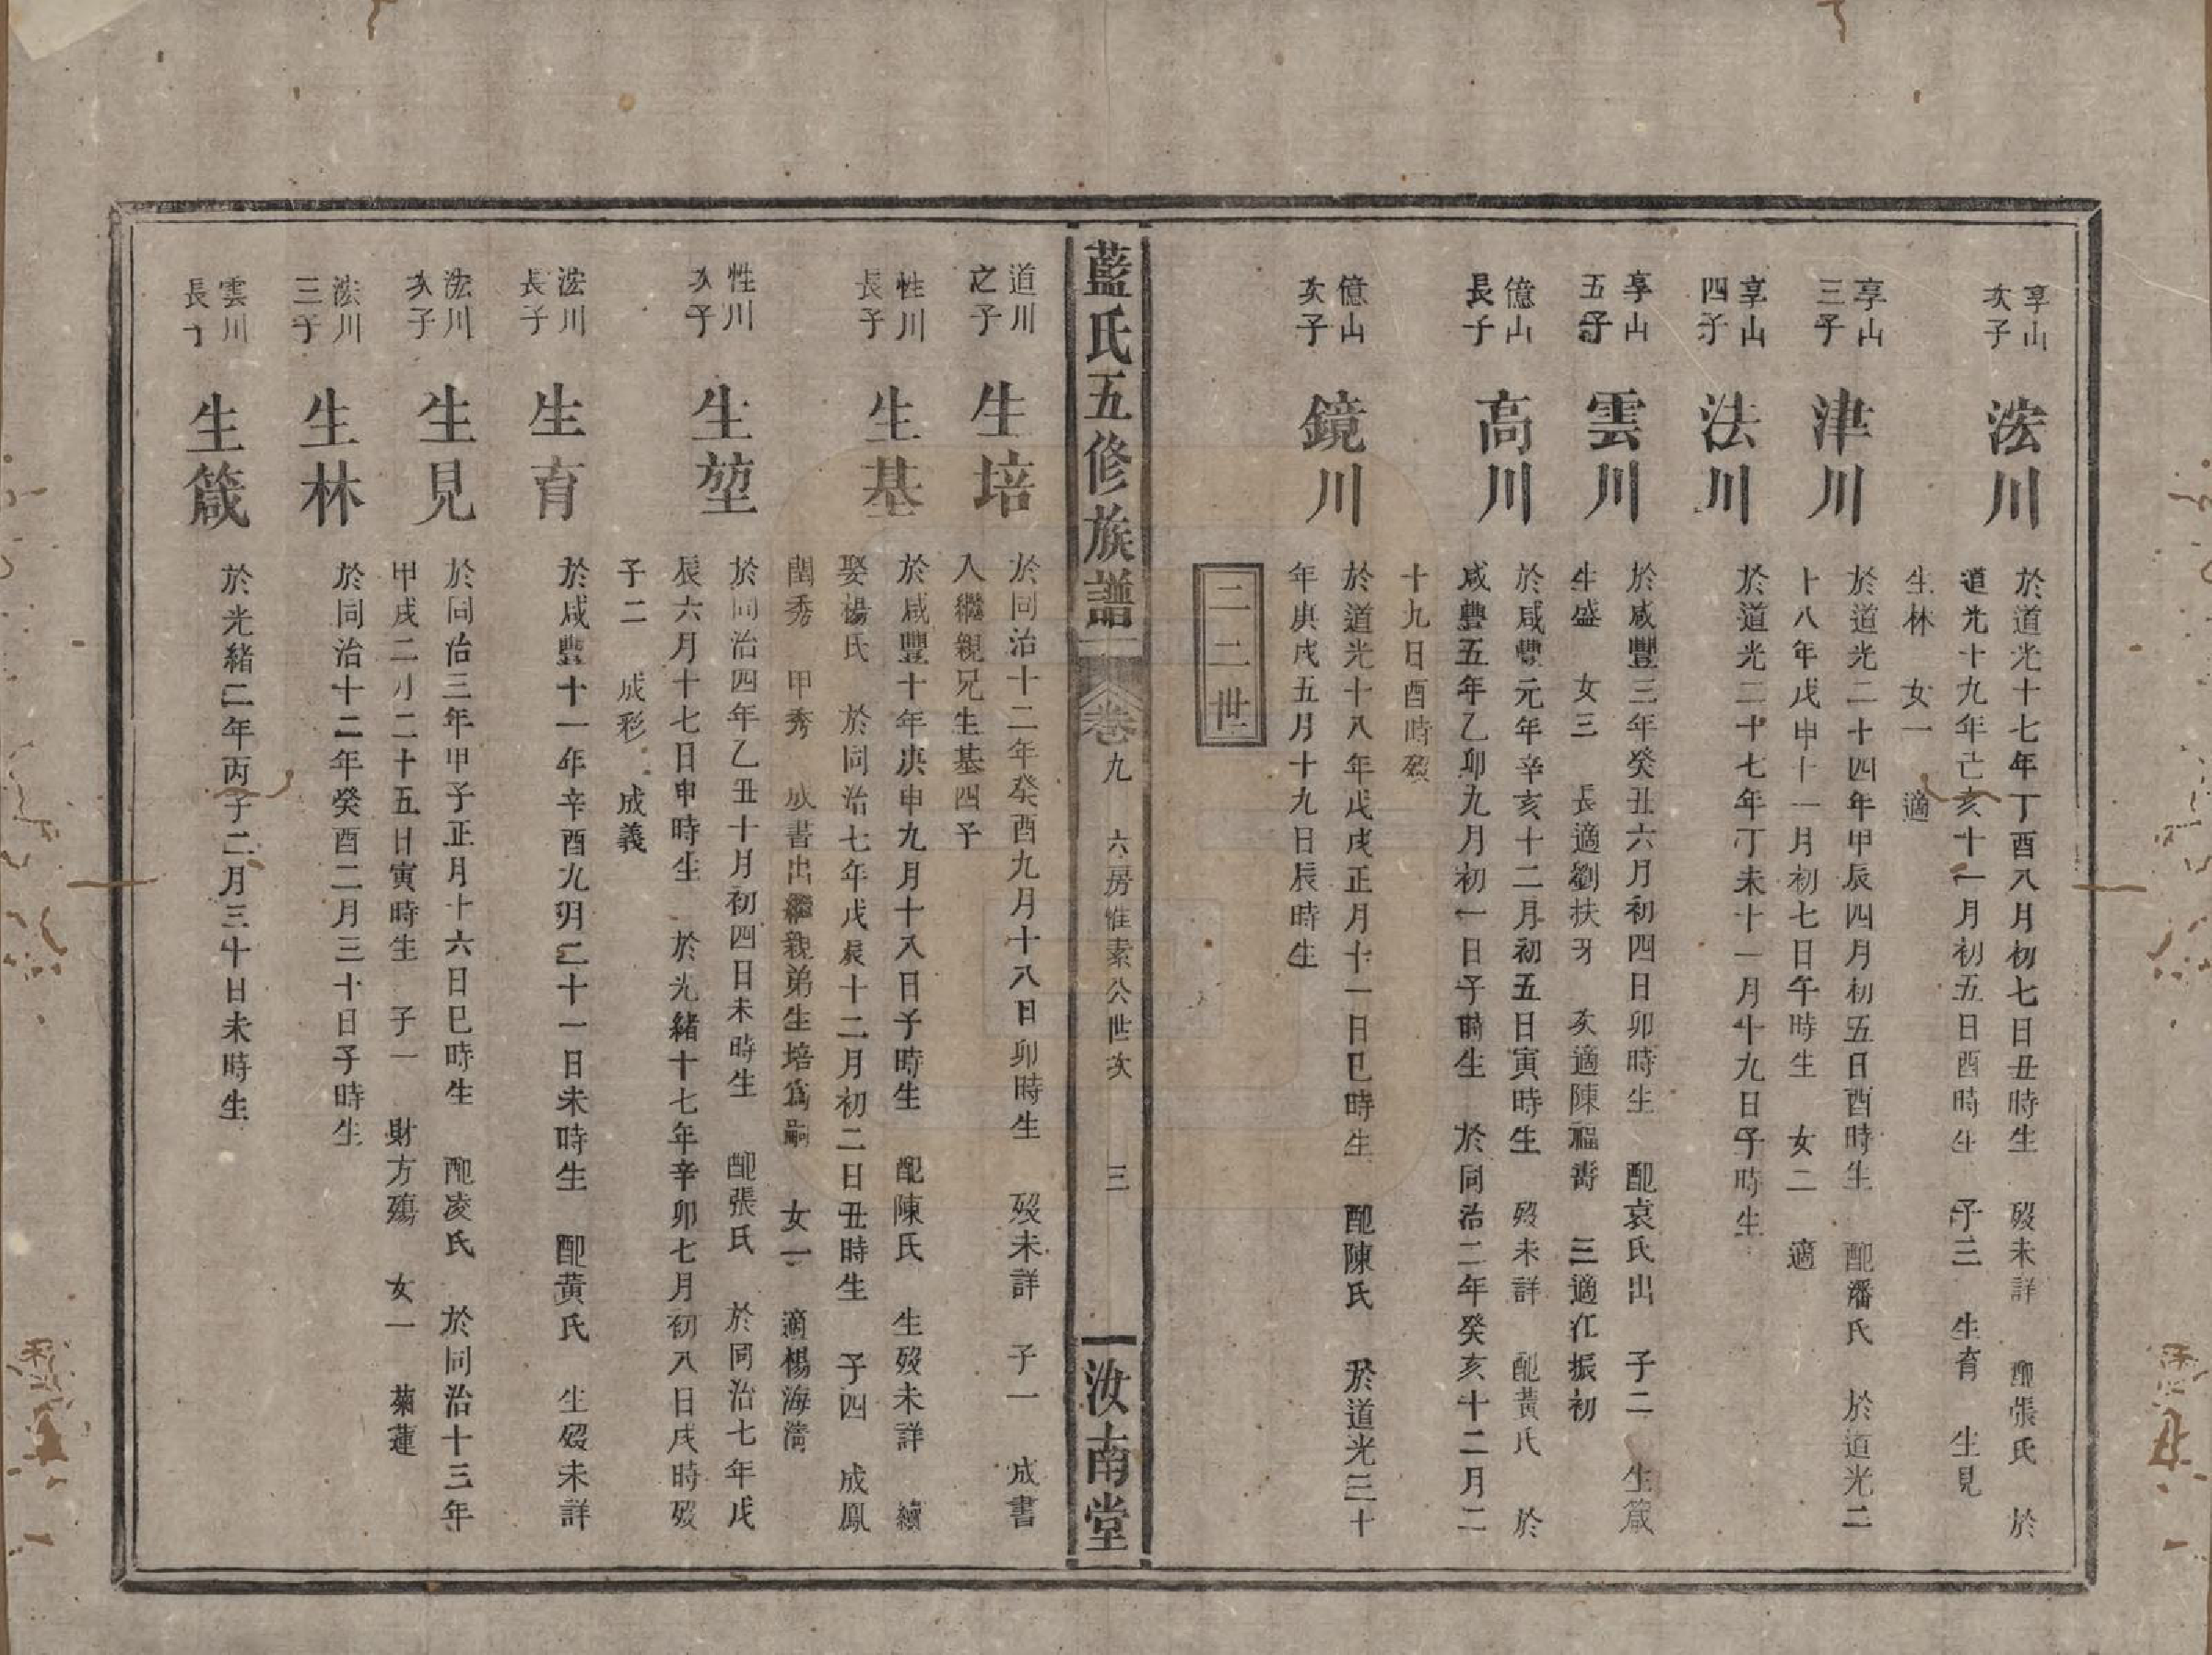 享山
次子
浤川
於道光十七年丁酉八月初七日丑時生　歿未詳　配張氏　於
道光十九年己亥十一月初五日酉時生　子三　生育　生見
生林　女一　適
享山
三子
津川
於道光二十四年甲辰四月初五日酉時生　配潘氏　於道光二
十八年戊申十一月初七日午時生　女二　適
享山
四子
法川
於道光二十七年丁未十一月十九日子時生
享山
五子
雲川
於咸豐三年癸丑六月初四日卯時生　配袁氏出　子二　生箴
生盛　女三　長適劉扶牙　次適陳福壽　三適江振初
億山
長子
高川
於咸豐元年辛亥十二月初五日寅時生　歿未詳　配黃氏　於
咸豐五年乙卯九月初一日子時生　於同治二年癸亥十二月二
十九日酉時歿
億山
次子
鏡川
於道光十八年戊戌正月十一日巳時生　配陳氏　於道光三十
年庚戌五月十九日辰時生
二二世
藍氏五修族譜　卷九　六房惟素公世次　三　汝南堂
道川
之子
生培
於同治十二年癸酉九月十八日卯時生　歿未詳　子一　成書
入繼親兄生基四子
性川
長子
生基
於咸豐十年庚申九月十八日子時生　配陳氏　生歿未詳　續
娶楊氏　於同治七年戊辰十二月初二日丑時生　子四　成鳳
閏秀　甲秀　成書出繼親弟生培為嗣　女一　適楊海滿
性川
次子
生堃
於同治四年乙丑十月初四日未時生　配張氏　於同治七年戊
辰六月十七日申時生　於光緒十七年辛卯七月初八日戌時歿
子二　成彩　成義
浤川
長子
生育
於咸豐十一年辛酉九月二十一日未時生　配黃氏　生歿未詳
浤川
次子
生見
於同治三年甲子正月十六日巳時生　配凌氏　於同治十三年
甲戌二月二十五日寅時生　子一　財方殤　女一　菊蓮
浤川
三子
生林
於同治十二年癸酉二月三十日子時生
雲川
長子
生箴
於光緒二年丙子二月三十日未時生